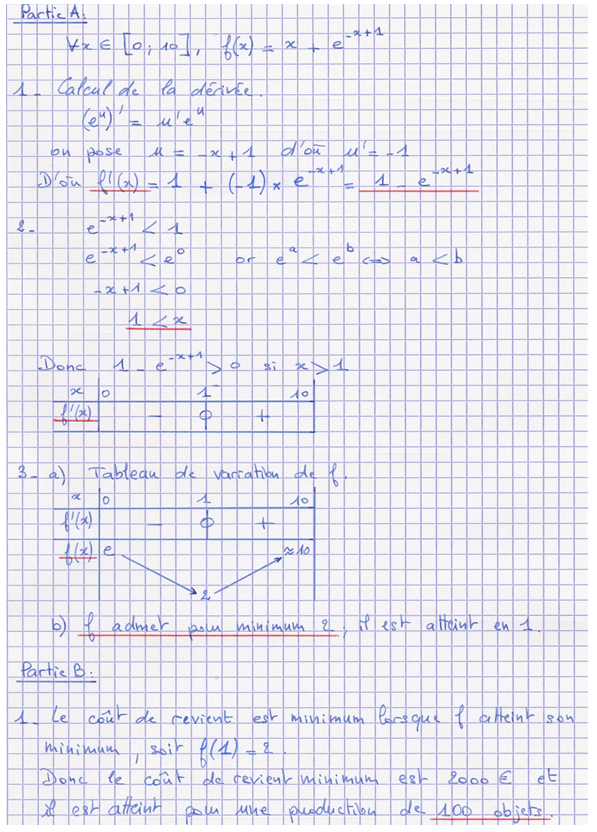 Partie A:
∀x ∈ [0; 10], f(x) = x + e^{-x+1}
1- Calcul de la dérivée.
(e^u)' = u'e^u
on pose u = -x+1 d'où u' = -1
D'où f'(x) = 1 + (-1) × e^{-x+1} = 1 - e^{-x+1}
2- e^{-x+1} < 1
e^{-x+1} < e^0 or e^a < e^b ⇔ a < b
-x+1 < 0
1 < x
Donc 1 - e^{-x+1} > 0 si x > 1
x 0 1 10
f'(x) - 0 +
3- a) Tableau de variation de f.
x 0 1 10
f'(x) - 0 +
f(x) e ≈10
2
b) f admet pour minimum 2, il est atteint en 1.
Partie B:
1- Le coût de revient est minimum lorsque f atteint son
minimum, soit f(1) = 2.
Donc le coût de revient minimum est 2000 € et
il est atteint pour une production de 100 objets.